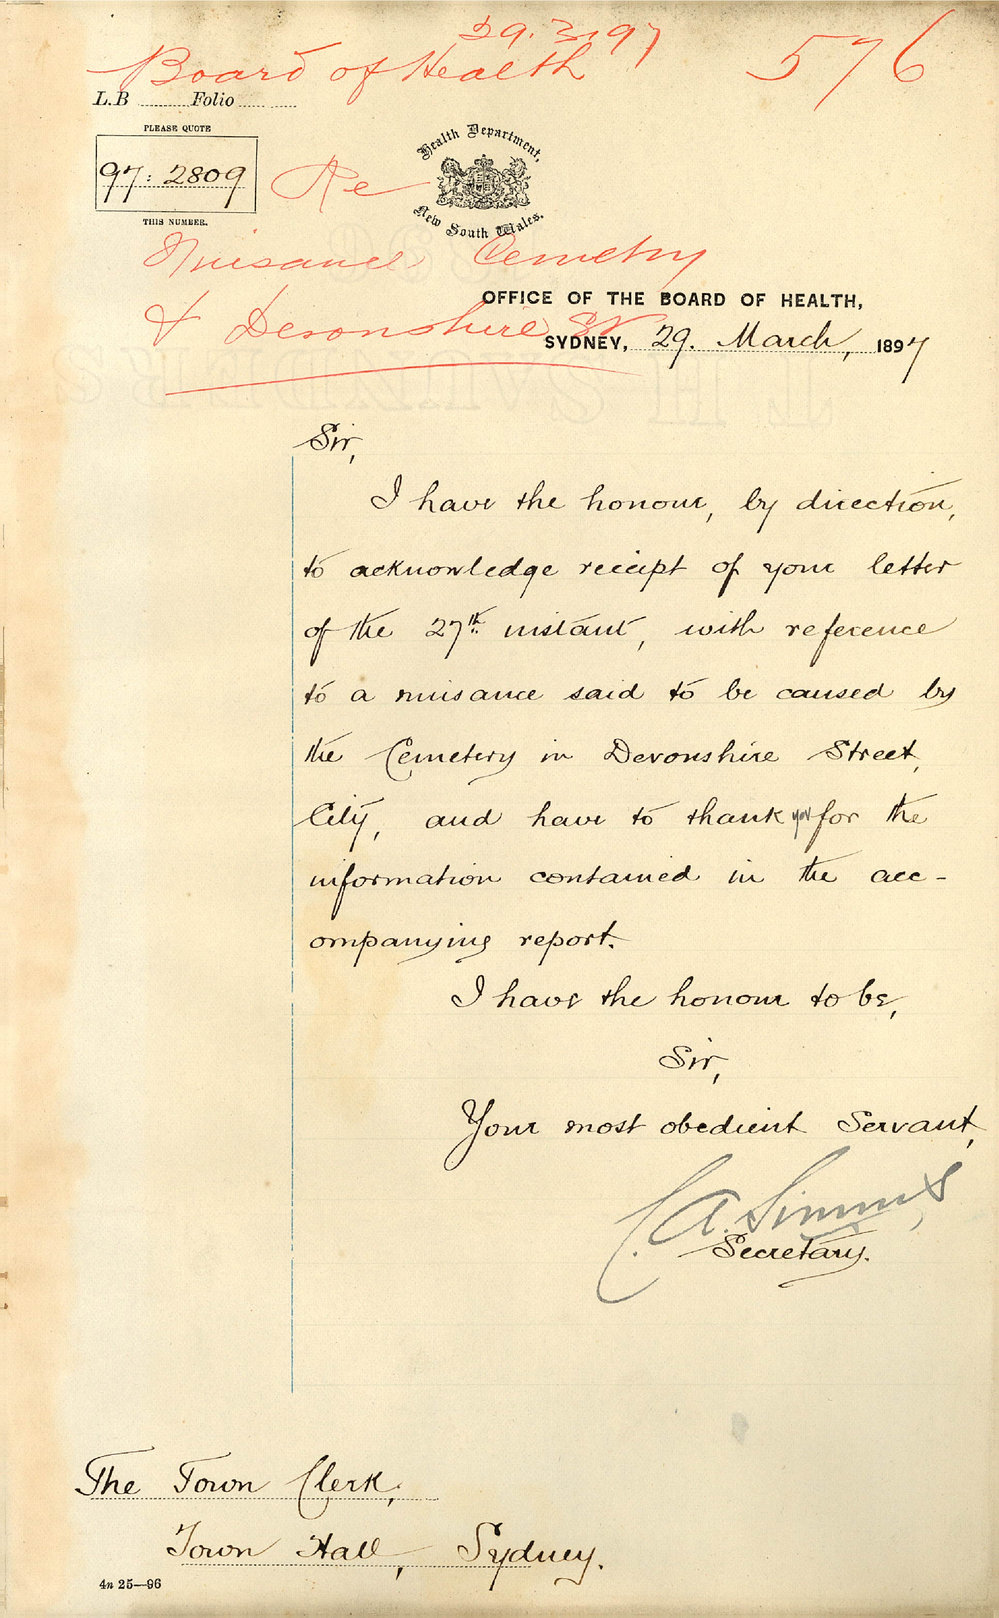 29.3.97
Board of Health 576
L.B ........ Folio ........
PLEASE QUOTE
97:2809
THIS NUMBER.
Re
Health Department,
New South Wales.
Nuisance Cemetry
& Devonshire St
OFFICE OF THE BOARD OF HEALTH,
SYDNEY, 29. March, 1897
Sir,
I have the honour, by direction,
to acknowledge receipt of your letter
of the 27th instant, with reference
to a nuisance said to be caused by
the Cemetery in Devonshire Street,
City, and have to thank you for the
information contained in the acc-
ompanying report.
I have the honour to be,
Sir,
Your most obedient Servant,
C. A. Simms
Secretary.
The Town Clerk,
Town Hall, Sydney.
4n 25—96